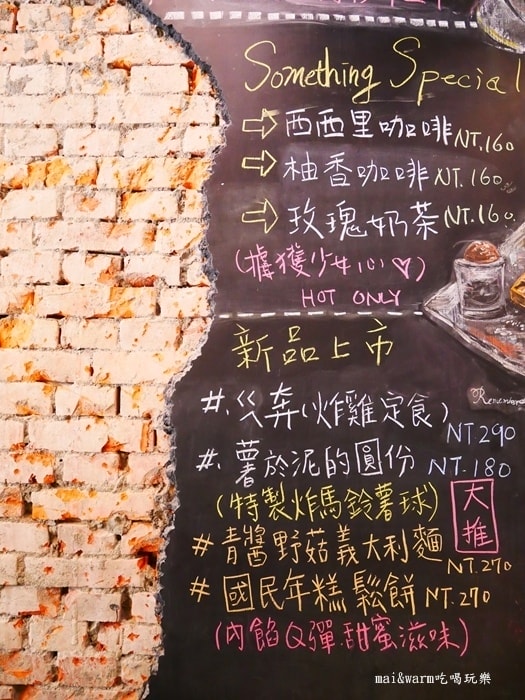 Something Special
⇨ 西西里咖啡 NT.160
⇨ 柚香咖啡 NT.160
⇨ 玫瑰奶茶 NT.160
(擄獲少女心♡)
HOT ONLY
新品上市
#. ㄍ奔(炸雞定食)
NT290
#. 薯於泥的圓份 NT.180
(特製炸馬鈴薯球)
大推
# 青醬野菇義大利麵
NT.270
# 國民年糕鬆餅 NT.270
(內餡Q彈甜蜜滋味)
Remember
mai&warm吃喝玩樂